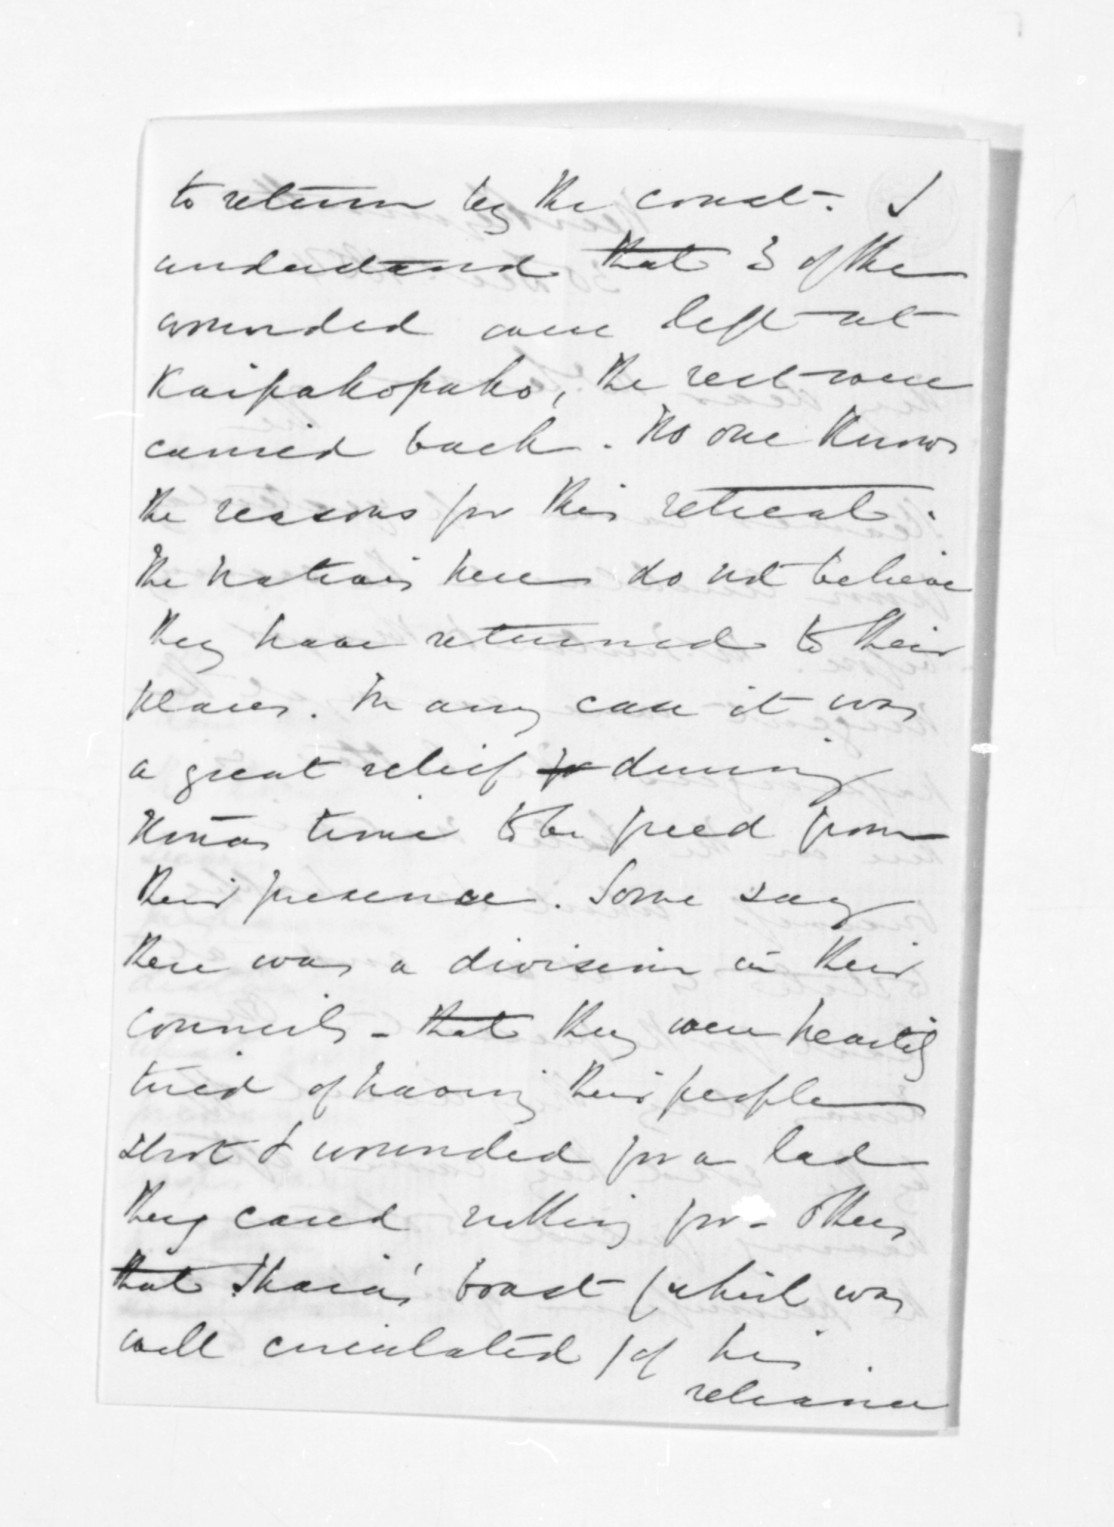 to return by the coast. I
understand that 3 of the
wounded were left at
Kaipakopako, the rest were
carried back. No one knows
the reasons for this retreat.
The natives here do not believe
they have returned to their
places. In any case it was
a great relief during
Xmas time to be freed from
their presence. Some say
there was a division in their
councils - that they were heartily
tired of having their people
shot & wounded for a lad
they cared nothing for - Others
that Ihaia's boast (which was
well circulated) of his
reliance